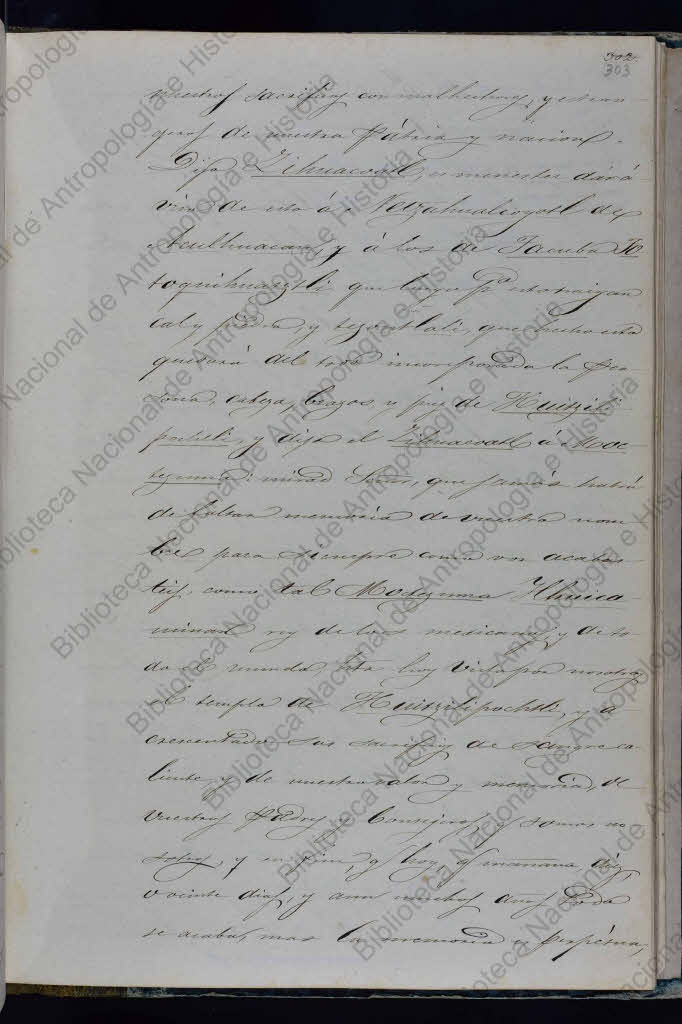 302.
303
nuestros sacrificios con malhechores, y estran-
geros de nuestra Pátria y nacion.
Dijo Zihuacoatl, es menester dar á-
viso de esto á Netzahualcoyotl de
Aculhuacan, y á los de Tacuba To-
toquihuaztli que luego pa. esto traigan
cal y piedra, y tezontlali, que hecho esto
quedará del todo incorporada la per-
sona, cabeza, brazos, y pies de Huitzili-
pochtli, y dijo el Zihuacoatl á Moc-
tezuma: mirad Señor, que jamás habrá
de faltar memoria de vuestro nom-
bre para siempre como vos acabas-
teis, como tal Moctezuma Ilhuica-
minan rey de los mexicanos, y de to-
do el mundo, hta. hoy visto por nosotros
el templo de Huitzilipochtli, y a-
crecentado sus sacrificios de sangre ca-
liente, y de vuestro valor y memoria, de
vuestros Padres y Consejeros, q. somos no-
sotros, y en fin, q. hoy, q. mañana, diez,
o veinte dias, y aun muchos años todo
se acaba, mas la memoria es perpétua,
Biblioteca Nacional de Antropología e Historia